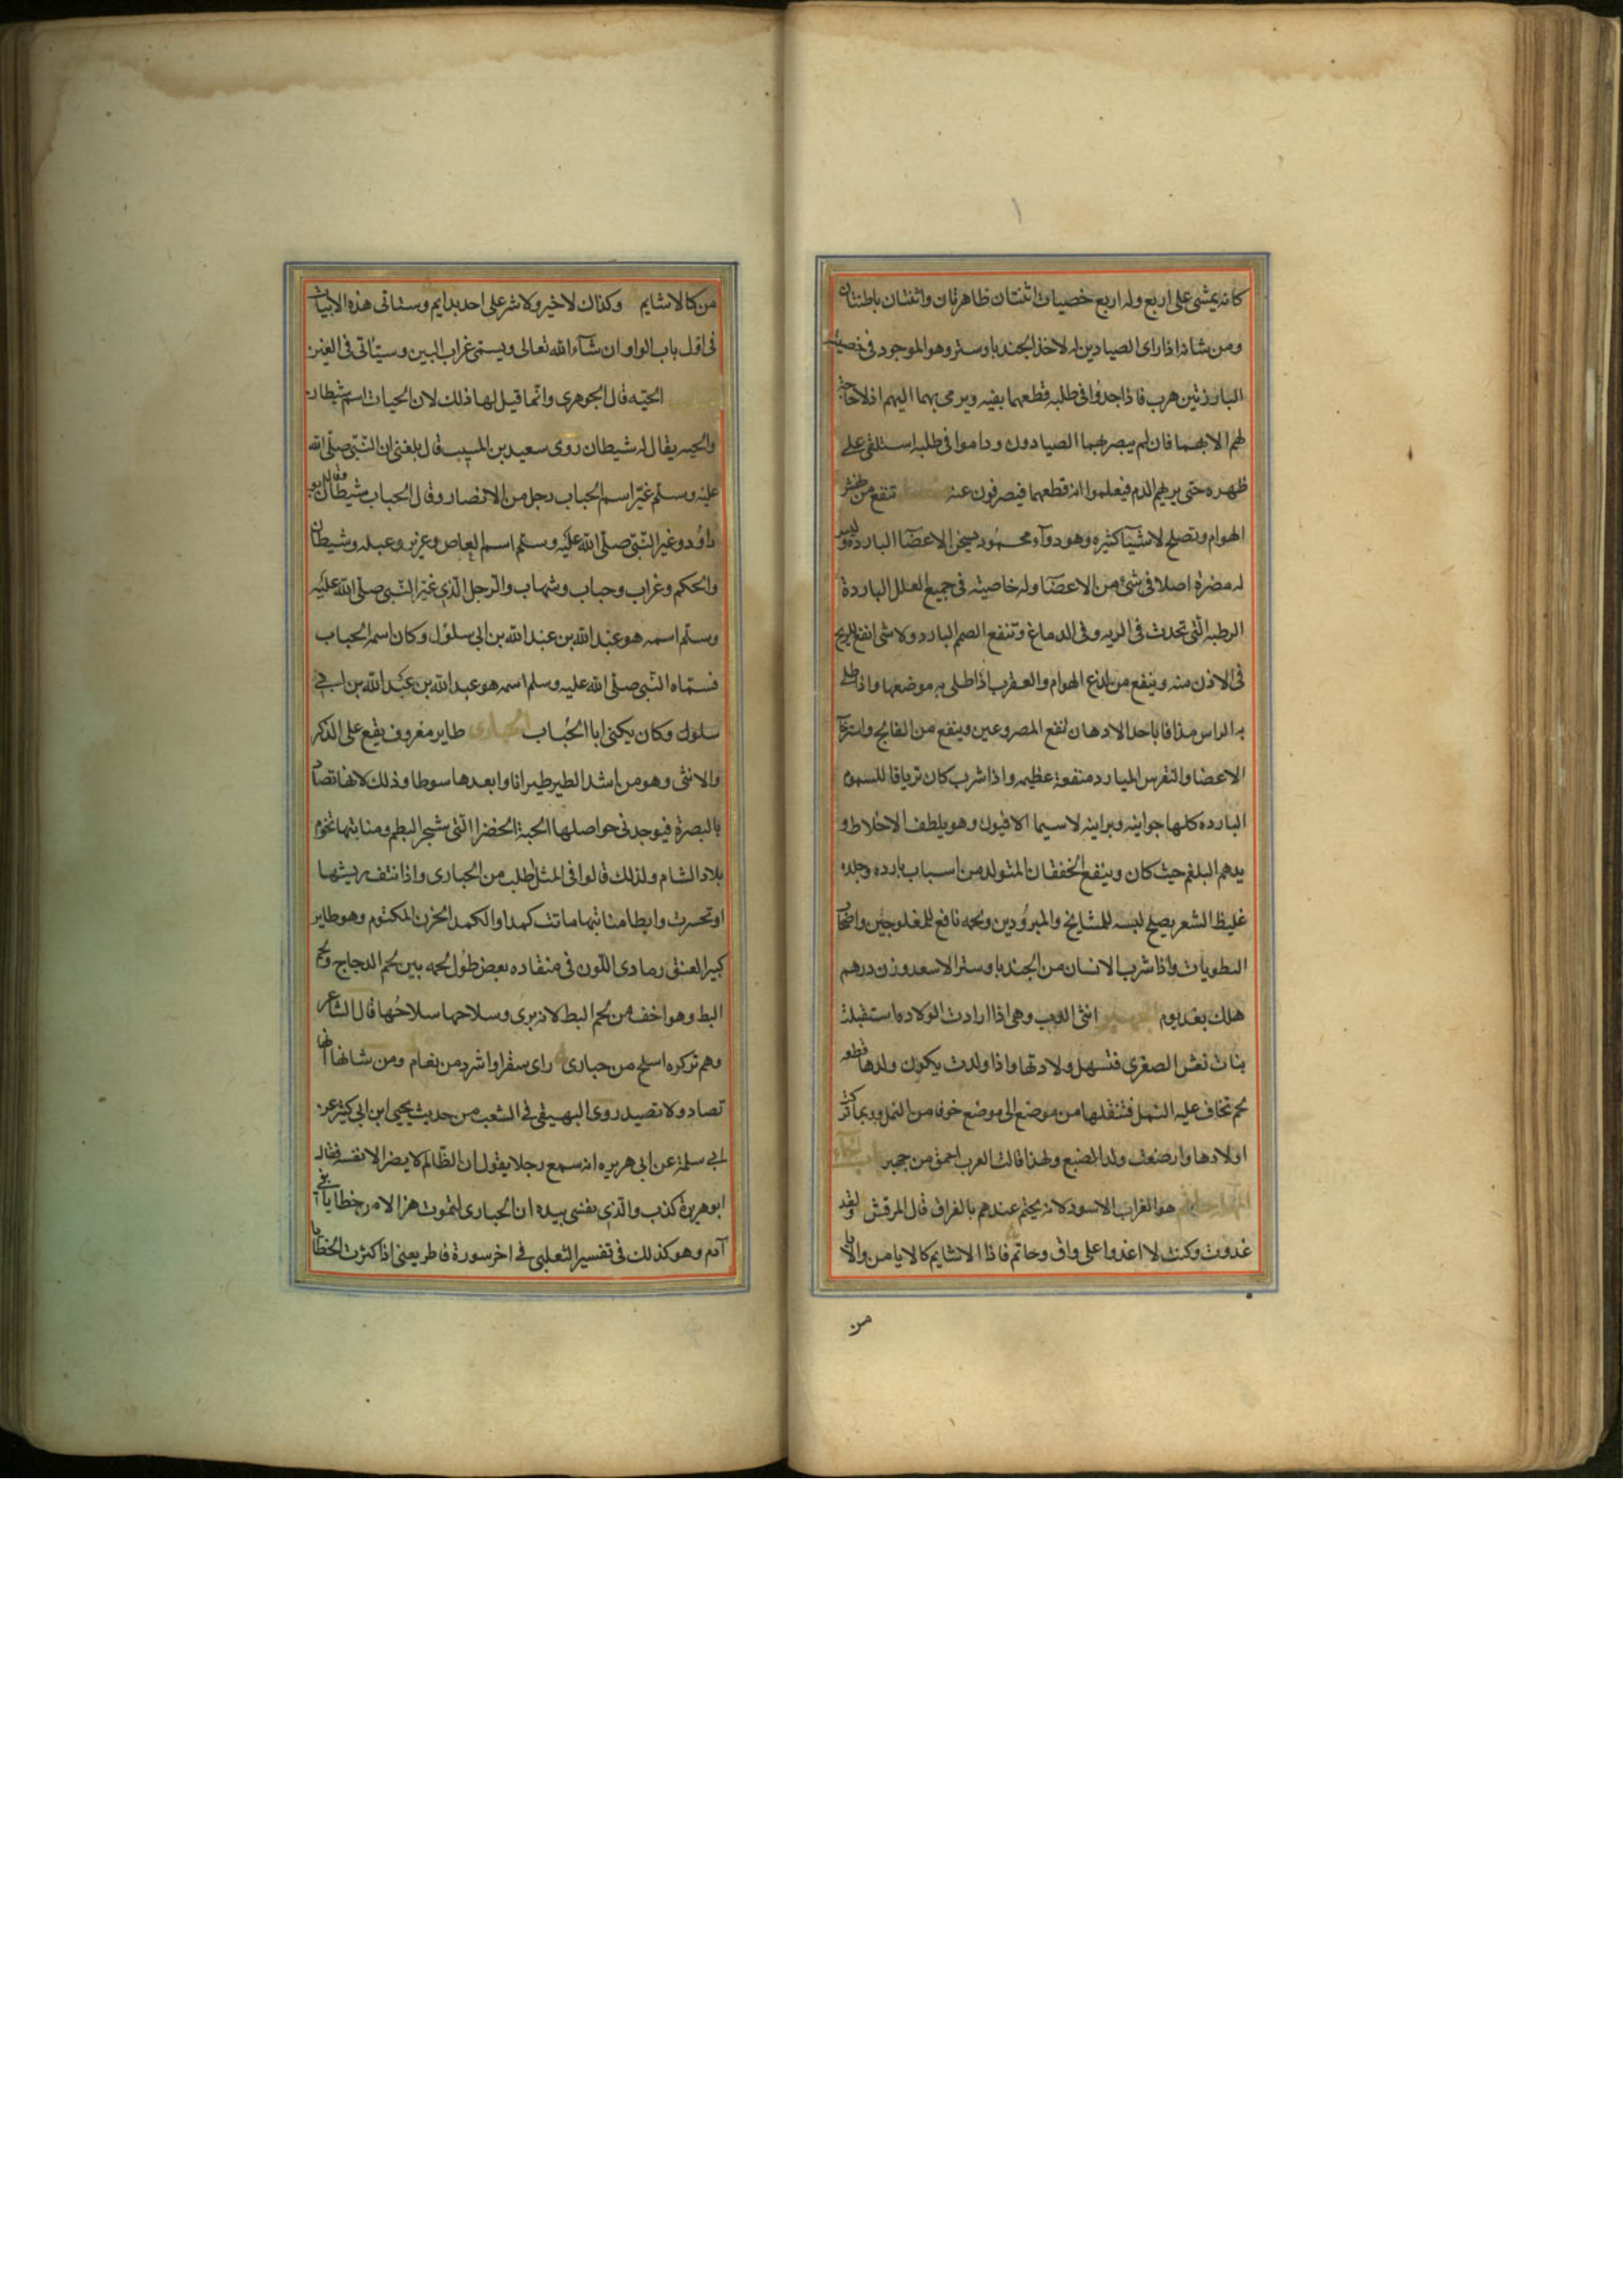 كانه يمشى على اربع وله اربع خصيات اثنتان ظاهرتان واثنتان باطنتان
ومن شانه اذا راى الصيادين له لاخذ الجند بادستر وهو الموجود فى خصيتيه
البارزتين هرب فاذا جدوا فى طلبه قطعهما بفيه ويرمى بهما اليهم اذ لا حاجة
لهم الا بهما فان لم يبصرهما الصيادون وداموا فى طلبه استلقى على
ظهره حتى يريهم الدم فيعلموا انه قطعهما فينصرفون عنه تنفع من نهش
الهوام ويصلح لاشيآ كثيره وهو دوآء محمود يسخن الاعضآ الباردة وليس
له مضرة اصلا فى شئ من الاعضآ وله خاصية فى جميع العلل الباردة
الرطبه التى تحدث فى الريه وفى الدماغ وتنفع الصم البارد ولا شى انفع للريح
فى الاذن منه وينفع من لدغ الهوام والعقرب اذا طلى به موضعها واذا طلى
به الراس مذافا باحد الادهان نفع المصروعين وينفع من الفالج واسترخآ
الاعضا والنقرس البارد منفعة عظيمه واذا شرب كان ترياقا للسموم
البارده كلها حوانيه وبرانيه لاسيما الافيون وهو يلطف الاخلاط و
يدهم البلغم حيث كان وينفع الخفقان المتولد من اسباب بارده وجلده
غليظ الشعر يصلح لبسه للمشايخ والمبرودين ولحمه نافع للمفلوجين واصحاب
الرطوبات واذا شرب الانسان من الجند بادستر الاسود وزن درهم
هلك بعد يوم انثى الدب وهى اذا ارادت الولاده استقبلت
بنات نعش الصغرى فتسهل ولادتها واذا ولدت يكون ولدها قطعه
لحم تخاف عليه النمل فتنقلها من موضع الى موضع خوفا من النمل وربما تركت
اولادها وارضعت ولد الضبع ولهذا قالت العرب احمق من جهبر
هو الغراب الاسود لانه يحتم عندهم بالفراق قال المرقش ولقد
غدوت وكنت لا اغدوا على واق وحاتم فاذا الاشايم كالايامن والايا
من
من كالاشايم وكذاك لا خير ولا شر على احد بدايم وستاتى هذه الابيات
فى اول باب الواو ان شآء الله تعالى ويسمى غراب البين وسيأتى فى الغين
الحيه قال الجوهرى وانما قيل لها ذلك لان الحباب اسم شيطان
والحيه يقال له شيطان روى سعيد بن المسيب قال بلغنى ان النبى صلى الله
عليه وسلم غير اسم الحباب رجل من الانصار وقال الحباب شيطان وقال ابو
داود وغير النبى صلى الله عليه وسلم اسم العاص وعزيز وعبله وشيطان
والحكم وغراب وحباب وشهاب والرجل الذى غير النبى صلى الله عليه
وسلم اسمه هو عبد الله بن عبد الله بن ابى سلول وكان اسمه الحباب
فسماه النبى صلى الله عليه وسلم اسمه هو عبد الله بن عبد الله بن ابى
سلول وكان يكنى ابا الحباب الحبارى طاير معروف يقع على الذكر
والانثى وهو من اشد الطير طيرانا وابعدها سوطا وذلك لانها تصاد
بالبصرة فيوجد فى حواصلها الحبة الخضرا التى شجر البطم ومنابتها تخوم
بلاد الشام ولذلك قالوا فى المثل اطلب من الحبارى واذا نتف ريشها
او تحسرت وابطا منابتها ماتت كمدا والكمد الحزن المكتوم وهو طاير
كبير العنق رمادى اللون فى منقاده بعض طول لحمه بين لحم الدجاج ولحم
البط وهو اخف من لحم البط لانه برى وسلاحها سلاحها قال الشاعر
وهم تركوه اسلح من حبارى راى سقرا واشرد من نعام ومن شانها انها
تصاد ولا تصيد روى البهيقى فى الشعب من حديث يحيى ابن ابى كثير عن
ابى سلمة عن ابى هريره انه سمع رجلا يقول ان الظالم لا يضر الا نفسه فقال
ابو هريرة كذب والذى نفسى بيده ان الحبارى لتموت هزالا من خطايا بنى
آدم وهو كذلك فى تفسير الثعلبى فى اخر سورة فاطر يعنى اذا كثرت الخطايا